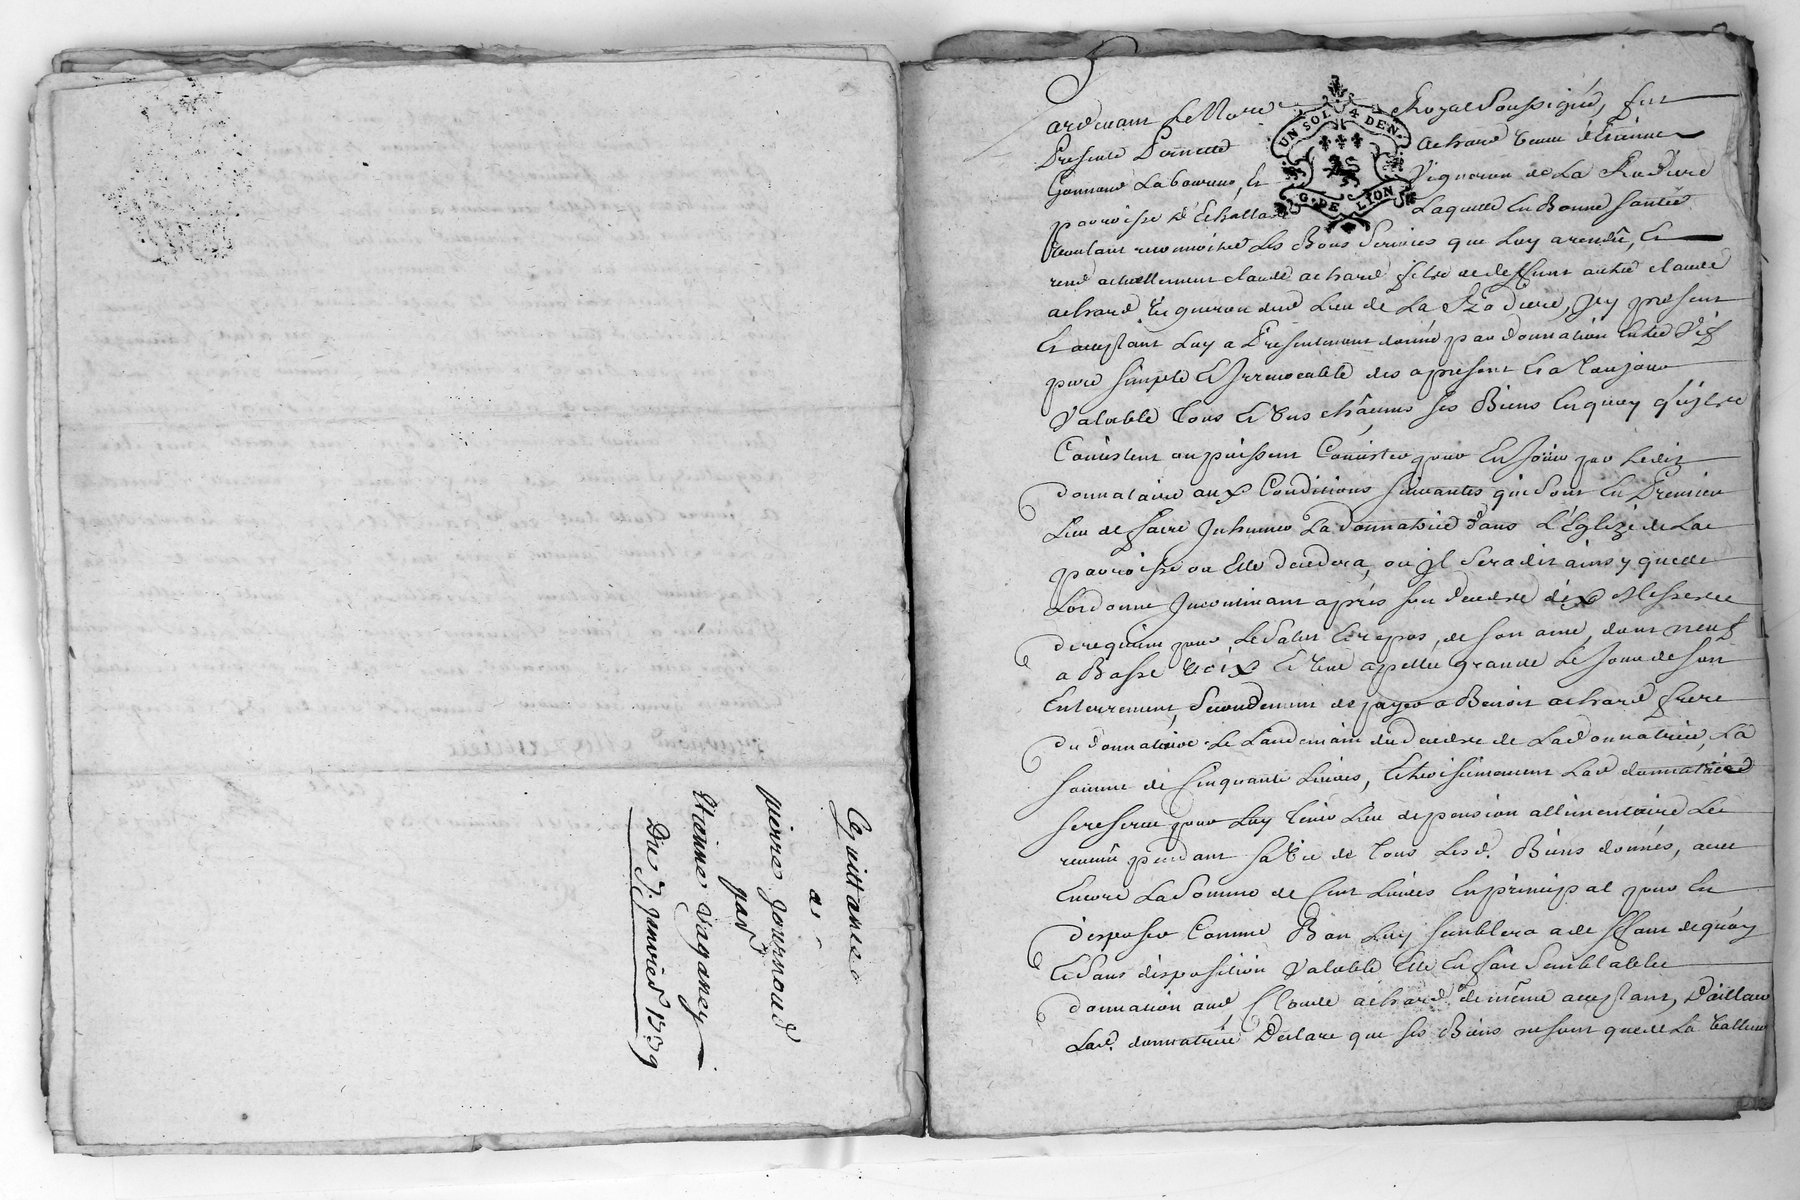 Quittance
a
pierre Journoud
par
Etienne Vaganey
Du 7e. Janvier 1739
UN SOL 4 DEN.
G. DE LYON
Pardevant Le No.re Royal Soussigné, fut
Presente Pernette achard veuve d'Etienne
Gonnand Laboureur, et Vigneron de La Rodiere
parroisse d'Echallas Laquelle En Bonne santée
voulant reconnoitre Les Bons Services que Luy a rendû, Et
rend actuellement claude achard fils de deffunt autre claude
achard Vigneron dud Lieu de La Rodiere, Icy present
Et acceptant Luy a Presentement donné par donnation Entre Vif
pure simple et Irrevocable des apresent Et a Toujour
Valable Tous Et Uns châcuns ses Biens En quoy qu'ils
Consistent ou puissent Consister pour En Joüir par Ledit
donnataire aux Conditions suivantes qui Sont En Premier
Lieu de faire Inhumer La donnatrice dans L'Eglize de La
parroisse ou Elle decedera, ou Il Sera dit ainsy quelle
L'ordonne Incontinant aprés son decedz dix Messes
de requiem pour Le Salut Et repos, de son ame, dont neuf
a Basse Voix Et Une apellée grande Le Jour de son
Enterrement, Secondement de payer a Benoit achard frere
du donnataire Le Landemain du decedz de La donnatrice, La
somme de Cinquante Livres, Et troisiemement Lad donnatrice
se reserve pour Luy Tenir Lieu de pension allimentaire Le
revenu pendant sa Vie de Tous Lesd. Biens donnés, avec
Encore La Somme de Cent Livres En principal pour En
disposer Comme Bon Luy semblera a deffaut de quoy
Et Sans disposition Valable Elle En fait Semblable
donnation aud Claude achard de même acceptant, D'ailleurs
Lad. donnatrice Declare que ses Biens ne sont que de La Valleur